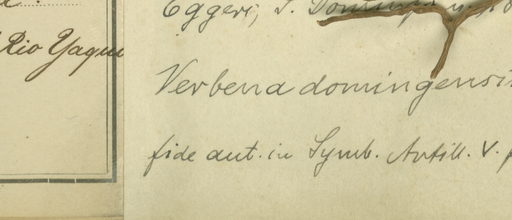 Rio Yaqui
Eggers, S. Domingo
Verbena domingensis
fide aut. in Symb. Antill. V. p